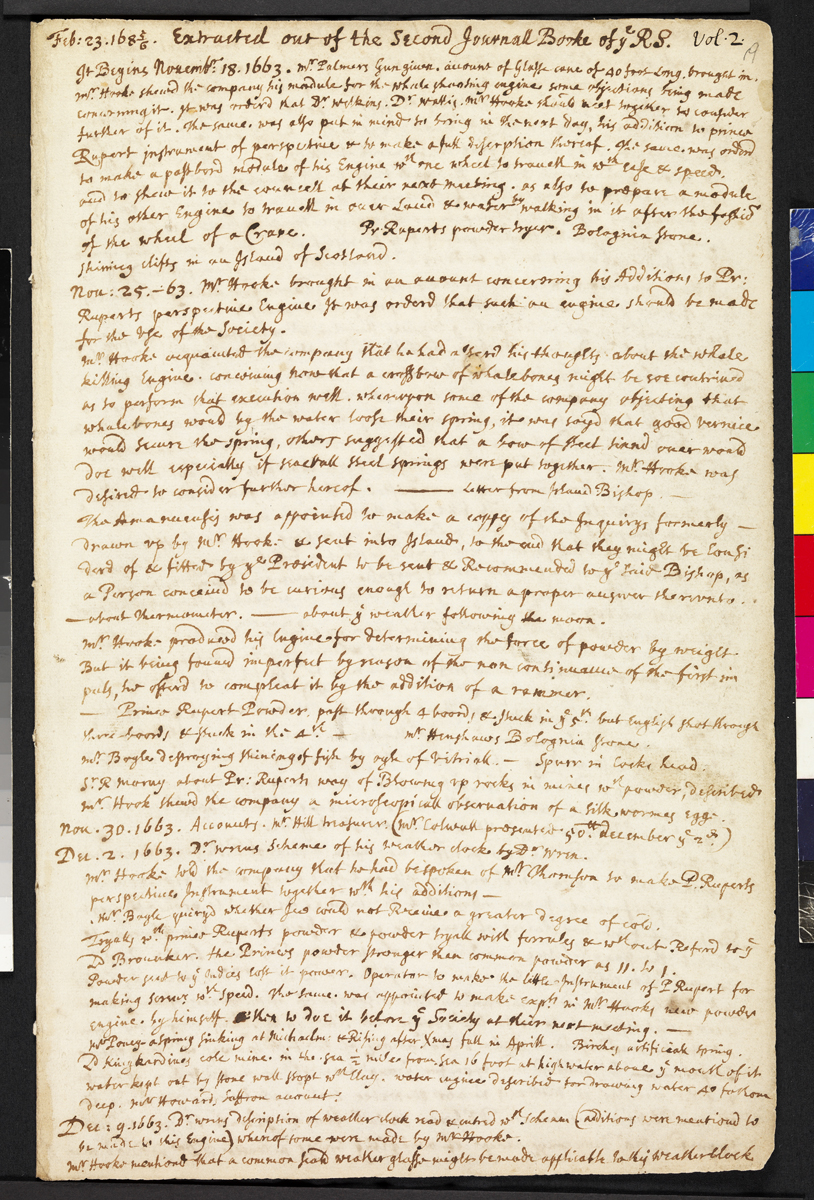 Feb: 23. 168 5/6. Extracted out of the Second Journall Booke of ye R S. Vol. 2.
It Begins Novembr. 18. 1663. mr. Palmers Gun given. account of Glasse cane of 40 foot Long, brought in.
mr. Hooke shewd the company his module for the whale shooting engine some objections being made
concerning it. It was orderd that Dr. Wilkins. Dr. Wallis. mr Hooke should meet together to consider
further of it. The same was also put in mind to bring in the next day, his addition to prince
Rupert instrument of perspective & to make a full discription thereof. The same was orderd
to make a pastbord module of his Engine wth one wheel to travell in wth ease & speed.
and to shew it to the councell at their next meeting. as also to prepare a module
of his other Engine to travell in over Land & water by walking in it after the fashio
of the wheel of a Crane. Pr. Ruperts powder tryer. Bolognia stone.
shining clifts in an Island of Scotland.
Nov: 25. - 63. Mr. Hooke brought in an account concerning his Additions to Pr:
Ruperts perspective Engine. It was orderd that such an engine should be made
for the Use of the Society.
mr. Hooke acquainted the company that he had alterd his thoughts about the whale
killing Engine. conceiving now that a crossbow of whalebones might be soe contrived
as to perform that execution well. whereupon some of the company objecting that
whalebones would by the water loose their spring, it was sayd that good vernice
would secure the spring, others suggested that a bow of steel tinnd over would
doe well especially if severall steel springs were put together. Mr. Hooke was
desired to consider further hereof. — Letter from Island Bishop. —
The Amanuensis was appointed to make a coppy of the Inquirys formerly —
drawn up by mr. Hooke & sent into Island, to the end that they might be Consi
derd of & fitted by ye President to be sent & Recommended to ye said Bishop, as
a Person conceivd to be curious enough to return a proper answer thereunto. .
— about thermometer. — about ye weather following the moon.
mr. Hooke produced his Engine for determining the force of powder by weight.
But it being found imperfect by reason of the non continuance of the first im
puls, he offerd to compleat it by the addition of a rammer.
— Prince Rupert Powder. past through 4 boords & stuck in ye 5th but English shot through
three boords & stuck in the 4th — mr Henshaws Bolognia stone.
mr. Boyle destroying shining of fish by oyle of Vitriol. — Spurr in Cocks head.
Sr. R moray about Pr: Ruperts way of Blowing up rocks in mines wth powder, described
mr. Hook shewd the company a microscopicall observation of a silk wormes egge.
Nov. 30. 1663. Accounts. mr. Hill treasurer (mr. Colwall presented 50lb December ye 2d.)
Dec. 2. 1663. Dr. wrens Scheme of his weather clock by Dr Wren.
mr. Hooke told the company that he had bespoken of mr. Thomson to make P. Ruperts
perspective Instrument together wth his additions —
. mr. Boyle quaryd whether Ice could not Receive a greater degree of cold.
Tryalls wth prince Ruperts powder & powder tryall with ferrules & wthout Referd to ye
Ld Brouncker. the Princes powder stronger than common powder as 11. to 1.
Powder sent to ye Indies lost it power. Operator to make the little Instrument of P Rupert for
making screws wth speed. The same was appointed to make expts in mr Hooks new powder
engine. by himself. & then to doe it before ye Society at their next meeting. —
mr Povey a spring sinking at Michaelms & Rising after Xmas full in Aprill. Birches artificiall spring.
Ld Kingkardines cole mine. in the sea ½ mile from sea 16 foot at high water above ye mouth of it
water kept out by stone wall stopt wth Clay. water engine described for drawing water 40 fathom
deep. mr Howard, Saffron account.
Dec: 9. 1663. Dr. wrens discription of weather clock read & entred wth scheme (additions were mentiond to
be made to this Engine) whereof some were made by mr Hooke.
mr. Hooke mentiond that a common seald weather glasse might be made applicable to this weatherclock